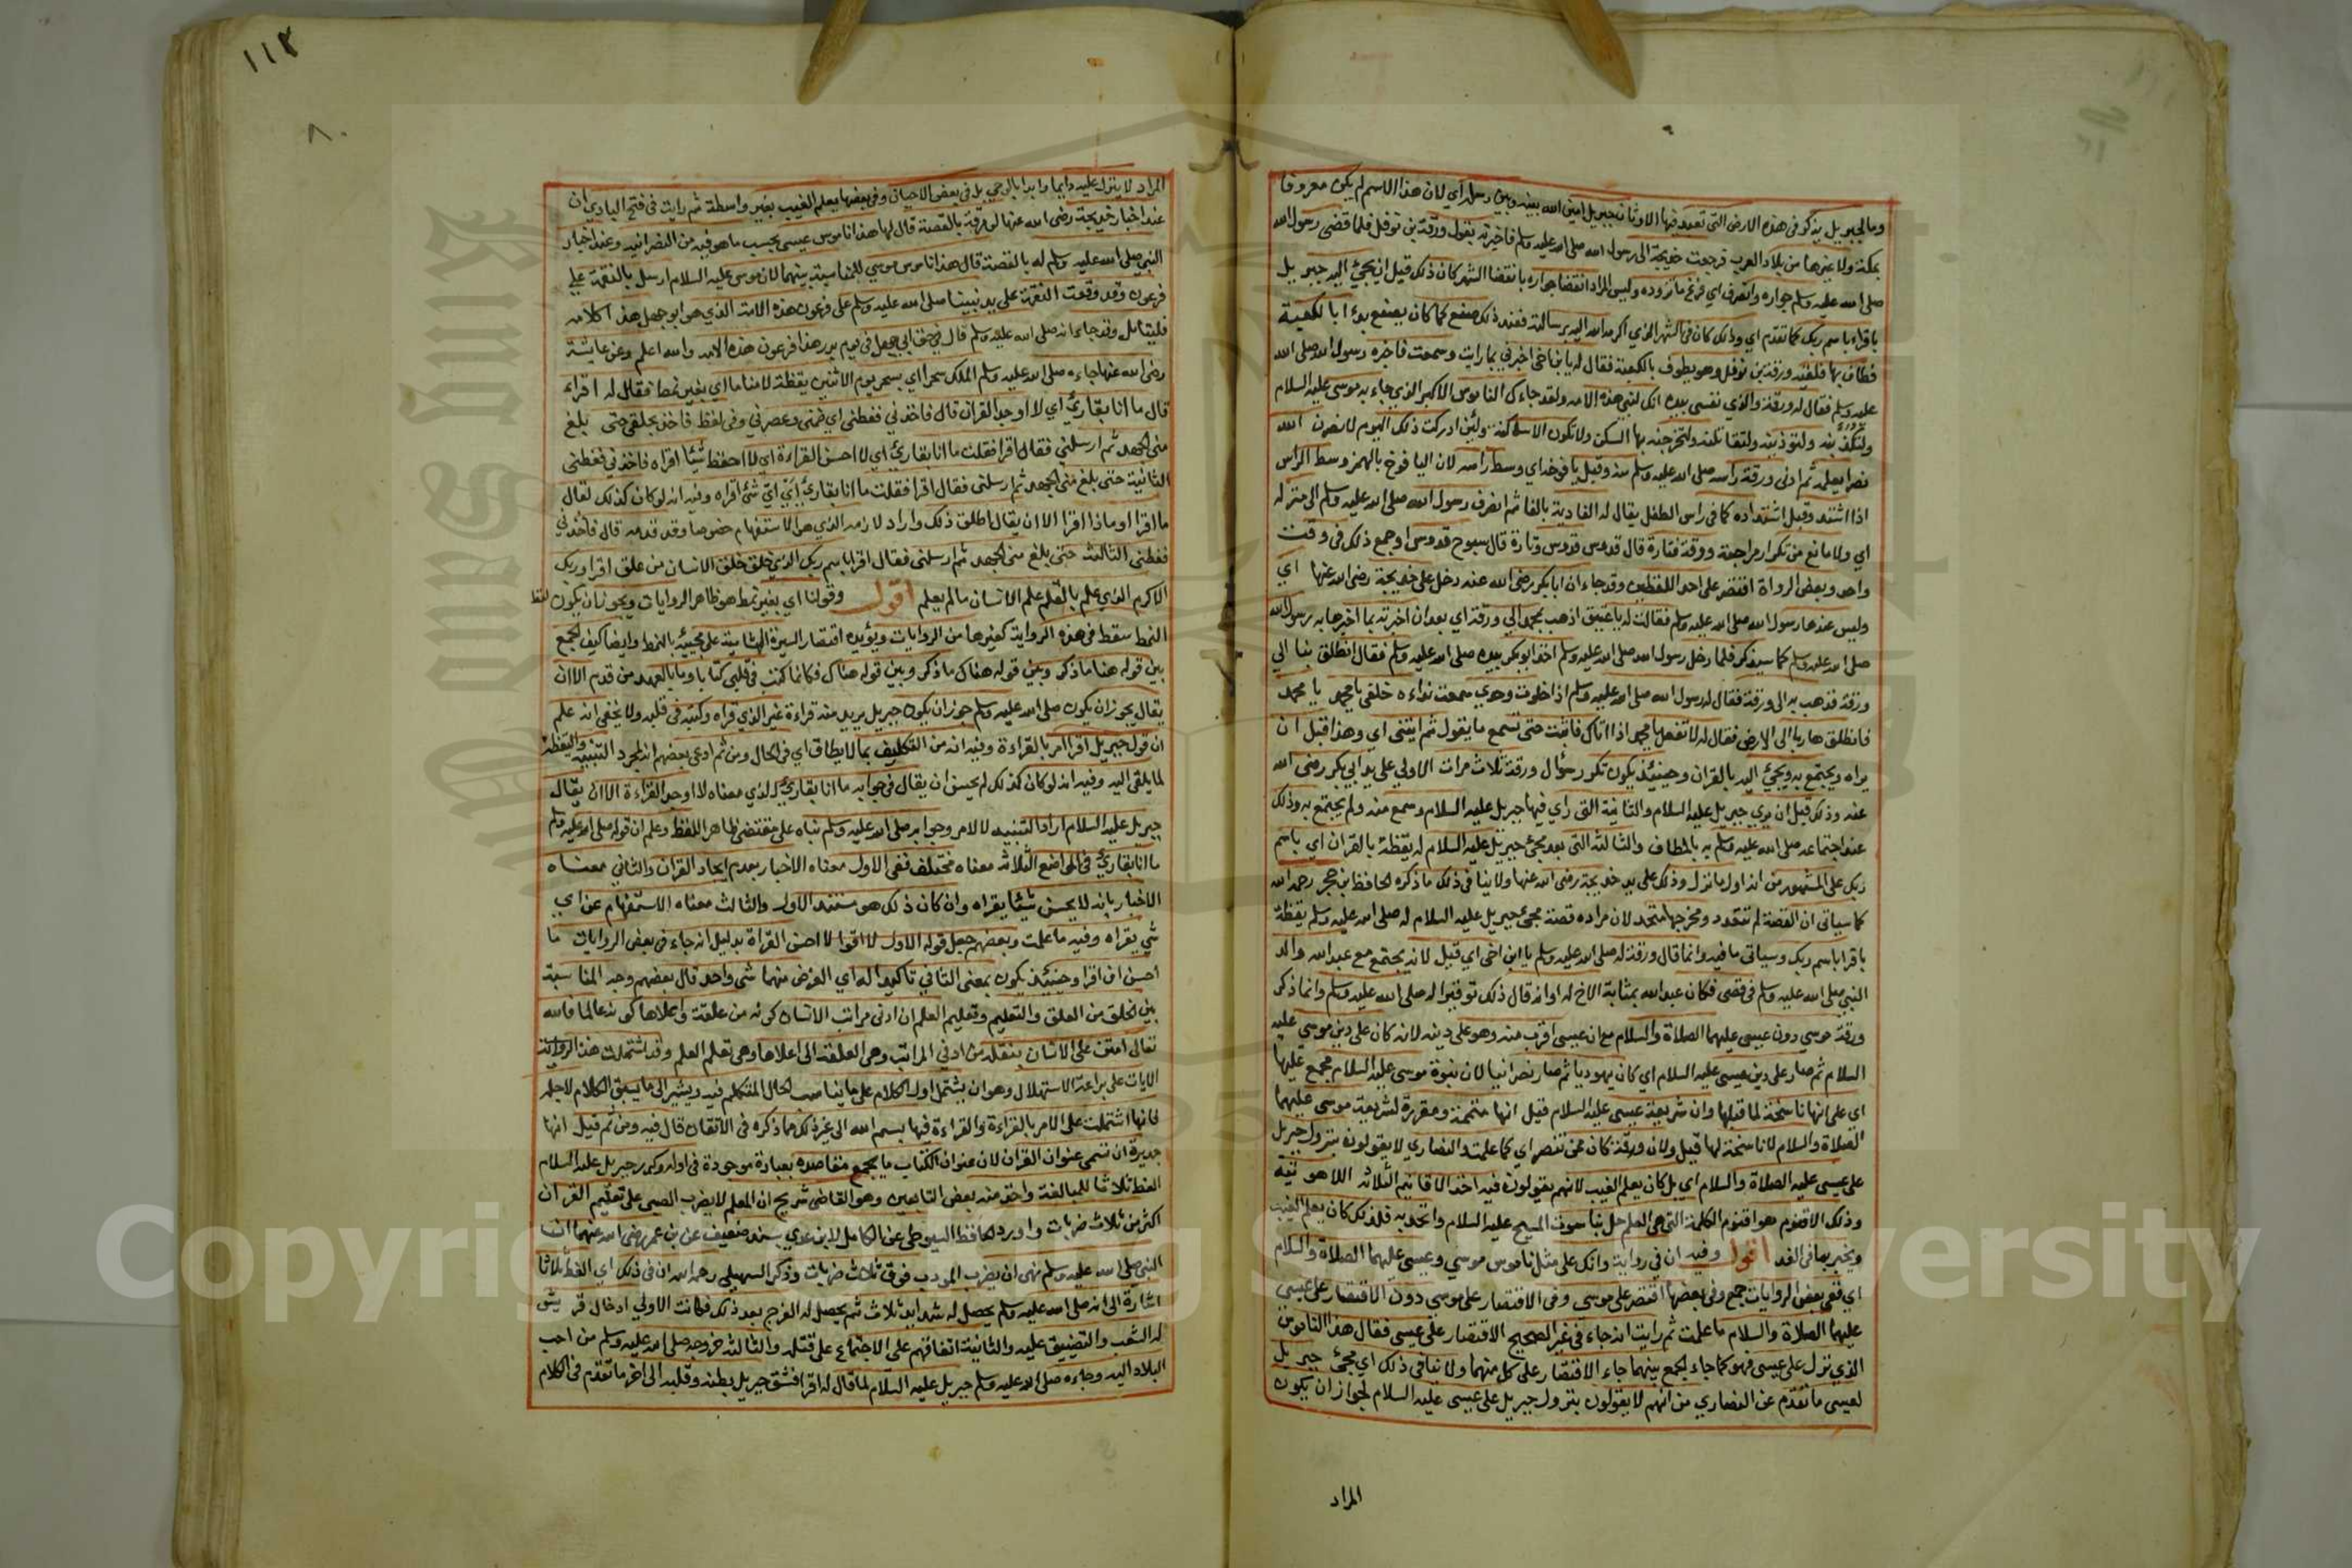 وما لجبريل يذكر في هذه الارض التي تعبد فيها الاوثان جبريل امين الله بينه وبين رسله اي لان هذا الاسم لم يكن معروفا
بمكة ولا غيرها من بلاد العرب فرجعت خديجة الى رسول الله صلى الله عليه وسلم فاخبرته بقول ورقة بن نوفل فلما قضى رسول الله
صلى الله عليه وسلم جواره وانصرف اي فرغ ما تزوده وليس المراد انقضا جواره بانقضا الشهر كان ذلك قبل ان يجئ اليه جبريل
باقراء باسم ربك كما تقدم اي وذلك كان في الشهر الذي اكرمه الله فيه برسالته فعند ذلك صنع كما كان يصنع بدء ابا لكعبة
فطاف بها فلقيه ورقة بن نوفل وهو يطوف بالكعبة فقال له يا بن اخي اخبرني بما رايت وسمعت فاخبره رسول الله صلى الله
عليه وسلم فقال له ورقة والذي نفسي بيده انك لنبي هذه الامة ولقد جاءك الناموس الاكبر الذي جاء به موسى عليه السلام
ولتكذبنه ولتوذينه ولتقاتلنه ولتخرجنه بها السكن ولا تكون الا ساكنة ولئن ادركت ذلك اليوم لانصرن الله
نصرا يعلمه ثم ادنى ورقة راسه صلى الله عليه وسلم منه وقبل يافوخه اي وسط راسه لان اليافوخ بالهمز وسط الراس
اذا اشتد وقبل اشتداده كما في راس الطفل يقال له الفادية بالفا ثم انصرف رسول الله صلى الله عليه وسلم الى منزله
اي ولا مانع من تكرار مراجعة ورقة فتارة قال قدوس قدوس وتارة قال سبوح قدوس او جمع ذلك في وقت
واحد وبعض الرواة اقتصر على احد اللفظين وقد جاء ان ابا بكر رضى الله عنه دخل على خديجة رضى الله عنها اي
وليس عندها رسول الله صلى الله عليه وسلم فقالت له يا عتيق اذهب بمحمد الى ورقة اي بعد ان اخبرته بما اخبرها به رسول الله
صلى الله عليه وسلم كما سيذكر فلما دخل رسول الله صلى الله عليه وسلم اخذ ابو بكر بيده صلى الله عليه وسلم فقال انطلق بنا الى
ورقة فذهب به الى ورقة فقال له رسول الله صلى الله عليه وسلم اذا خلوت وحدي سمعت نداء خلفي يا محمد يا محمد
فانطلق هاربا الى الارض فقال له لا تفعل يا محمد اذا اتاك فاثبت حتى تسمع ما يقول ثم ايتني اي وهذا قبل ان
يراه ويجتمع به ويجئ اليه بالقران وحينئذ يكون تكرر سؤال ورقة ثلاث مرات الاولى على يد ابي بكر رضى الله
عنه وذلك قبل ان يرى جبريل عليه السلام والثانية التي راي فيها جبريل عليه السلام وسمع منه ولم يجتمع به وذلك
عند اجتماعه صلى الله عليه وسلم به بالمطاف والثالثة التي بعد مجئ جبريل عليه السلام له يقظة بالقران اي باسم
ربك على المشهور من انه اول ما نزل وذلك على يد خديجة رضى الله عنها ولا ينافى ذلك ما ذكره الحافظ ابن حجر رحمه الله
كما سياتي ان القصة لم تتعدد ومخرجها متحد لان مراده قصة مجئ جبريل عليه السلام له صلى الله عليه وسلم يقظة
باقرا باسم ربك وسياتي ما فيه وانما قال ورقة له صلى الله عليه وسلم يا ابن اخي اي قيل لانه يجتمع مع عبد الله والد
النبي صلى الله عليه وسلم في قصي فكان عبد الله بمثابة الاخ له او انه قال ذلك توقيرا له صلى الله عليه وسلم وانما ذكر
ورقة موسي دون عيسى عليهما الصلاة والسلام مع ان عيسى اقرب منه وهو على دينه لانه كان على دين موسي عليه
السلام ثم صار على دين عيسى عليه السلام اي كان يهوديا ثم صار نصرانيا لان نبوة موسى عليه السلام مجمع عليها
اي على انها ناسخة لما قبلها وان شريعة عيسى عليه السلام قيل انها متممة ومقررة لشريعة موسى عليهما
الصلاة والسلام لا ناسخة لها قيل ولان ورقة كان ممن تنصر اي كما علمت والنصاري لا يقولون بنزول جبريل
على عيسى عليه الصلاة والسلام اي بل كان يعلم الغيب لانهم يقولون فيه احد الاقانيم الثلاثة اللاهوتيه
وذلك الاقنوم هو اقنوم الكلمة التي هي العلم حل بناسوت المسيح عليه السلام واتحد به فلذلك كان يعلم الغيب
ويخبر بما في الغد اقول وفيه ان في رواية وانك على مثل ناموس موسي وعيسى عليهما الصلاة والسلام
اي ففي بعض الروايات جمع وفي بعضها اقتصر على موسي وفي الاقتصار على موسي دون الاقتصار على عيسى
عليهما الصلاة والسلام ما علمت ثم رايت انه جاء في غير الصحيح الاقتصار على عيسى فقال هذا الناموس
الذي نزل على عيسى فهو كما جاء الجمع بينهما جاء الاقتصار على كل منهما ولا ينافي ذلك اي مجئ جبريل
لعيسى ما تقدم عن النصاري من انهم لا يقولون بنزول جبريل على عيسى عليه السلام لجواز ان يكون
المراد
١١٢
٨٠
المراد لا ينزل عليه دايما وابدا بالوحي بل في بعض الاحيان وفي بعضها يعلم الغيب بغير واسطة ثم رايت في فتح الباري ان
عند اخبار خديجة رضى الله عنها لورقة بالقصة قال لها هذا ناموس عيسى بحسب ما هو فيه من النصرانيه وعند اخبار
النبي صلى الله عليه وسلم له بالقصة قال هذا ناموس موسي للمناسبة بينهما لان موسى عليه السلام ارسل بالنقمة على
فرعون وقد وقعت النقمة على يد نبينا صلى الله عليه وسلم على فرعون هذه الامة الذي هو ابو جهل هذا كلامه
فليتامل وقد جاء انه صلى الله عليه وسلم قال في حق ابي جهل في يوم بدر هذا فرعون هذه الامة والله اعلم وعن عايشة
رضى الله عنها جاءه صلى الله عليه وسلم الملك سحرا اي سحر يوم الاثنين يقظة لا مناما اي بغير نمط فقال له اقراء
قال ما انا بقارئ اي لا اوجد القران قال فاخذني فغطني اي ضمني وعصرني وفي لفظ فاخذ بحلقي حتى بلغ
مني الجهد ثم ارسلني فقال اقرا فقلت ما انا بقارئ اي لا احسن القراءة اي لا احفظ شيئا اقراه فاخذني فغطني
الثانية حتى بلغ مني الجهد ثم ارسلني فقال اقرا فقلت ما انا بقارئ اي اي شئ اقراه وفيه انه لو كان كذلك لقال
ما اقرا او ماذا اقرا الا ان يقال اطلق ذلك واراد لازمه الذي هو الاستفهام خصوصا وقد قدمه قال فاخذني
فغطني الثالثة حتى بلغ مني الجهد ثم ارسلني فقال اقرا باسم ربك الذي خلق خلق الانسان من علق اقرا وربك
الاكرم الذي علم بالقلم علم الانسان ما لم يعلم اقول وقولنا اي بغير نمط هو ظاهر الروايات ويجوز ان يكون لفظ
النمط سقط في هذه الرواية كغيرها من الروايات ويؤيده اقتصار السيرة الهشامية على مجيئه بالنمط وايضا كيف الجمع
بين قوله هنا ما ذكر وبين قوله هناك ما ذكر وبين قوله هناك فكانما كتب في قلبي كتابا وما بالعهد من قدم الا ان
يقال يجوز ان يكون صلى الله عليه وسلم جوز ان يكون جبريل يريد منه قراءة غير الذي قراه وكتب في قلبه ولا يخفى انه علم
ان قول جبريل اقرا امر بالقراءة وفيه انه من التكليف بما لا يطاق اي في الحال ومن ثم ادعى بعضهم انه لمجرد التنبيه واليقظة
لما يلقى اليه وفيه انه لو كان كذلك لم يحسن ان يقال في جوابه ما انا بقارئ الذي معناه لا اوجد القراءة الا ان يقال
جبريل عليه السلام اراد التنبيه لا الامر وجوابه صلى الله عليه وسلم بناه على مقتضى ظاهر اللفظ وعلم ان قوله صلى الله عليه وسلم
ما انا بقارئ في المواضع الثلاثة معناه مختلف ففي الاول معناه الاخبار بعدم ايجاد القران والثاني معناه
الاخبار بانه لا يحسن شيئا يقراه وان كان ذلك هو مستند الاول والثالث معناه الاستفهام عن اي
شي يقراه وفيه ما علمت وبعضهم جعل قوله الاول لا اقرا لا احسن القراة بدليل انه جاء في بعض الروايات ما
احسن ان اقرا وحينئذ يكون بمعنى الثاني تاكيدا له اي الغرض منهما شي واحد قال بعضهم وجه المناسبة
بين الخلق من العلق والتعليم وتعليم العلم ان ادنى مراتب الانسان كونه من علقة واعلاها كونه عالما فالله
تعالى امتن على الانسان بنقله من ادنى المراتب وهي العلقة الى اعلاها وهي تعلم العلم وقد اشتملت هذه الرواية
الايات على براعة الاستهلال وهو ان يشتمل اول الكلام على ما يناسب الحال المتكلم فيه ويشير الى ما سيق الكلام لاجله
فانها اشتملت على الامر بالقراءة والقراءة فيها بسم الله الى غير ذلك مما ذكره في الاتقان قال فيه ومن ثم قيل انها
جديرة ان تسمى عنوان القران لان عنوان الكتاب ما يجمع مقاصده بعبارة موجودة في اوله وكرر جبريل عليه السلام
الغط ثلاثا للمبالغة واخذ منه بعض التابعين وهو القاضي شريح ان المعلم لا يضرب الصبى على تعليم القران
اكثر من ثلاث ضربات واورد الحافظ السيوطي عن الكامل لابن عدي بسند ضعيف عن بن عمر رضى الله عنهما ان
النبي صلى الله عليه وسلم نهى ان يضرب المودب فوق ثلاث ضربات وذكر السهيلي رحمه الله ان في ذلك اي الغط ثلاثا
اشارة الى انه صلى الله عليه وسلم يحصل له شدايد ثلاث ثم يحصل له الفرج بعد ذلك فكانت الاولى ادخال قريش
له الشعب والتضييق عليه والثانية اتفاقهم على الاجتماع على قتله والثالثة خروجه صلى الله عليه وسلم من احب
البلاد اليه وجاءه صلى الله عليه وسلم جبريل عليه السلام لما قال له اقرا فشق جبريل بطنه وقلبه الى اخر ما تقدم في الكلام
Copyright © King Saud University